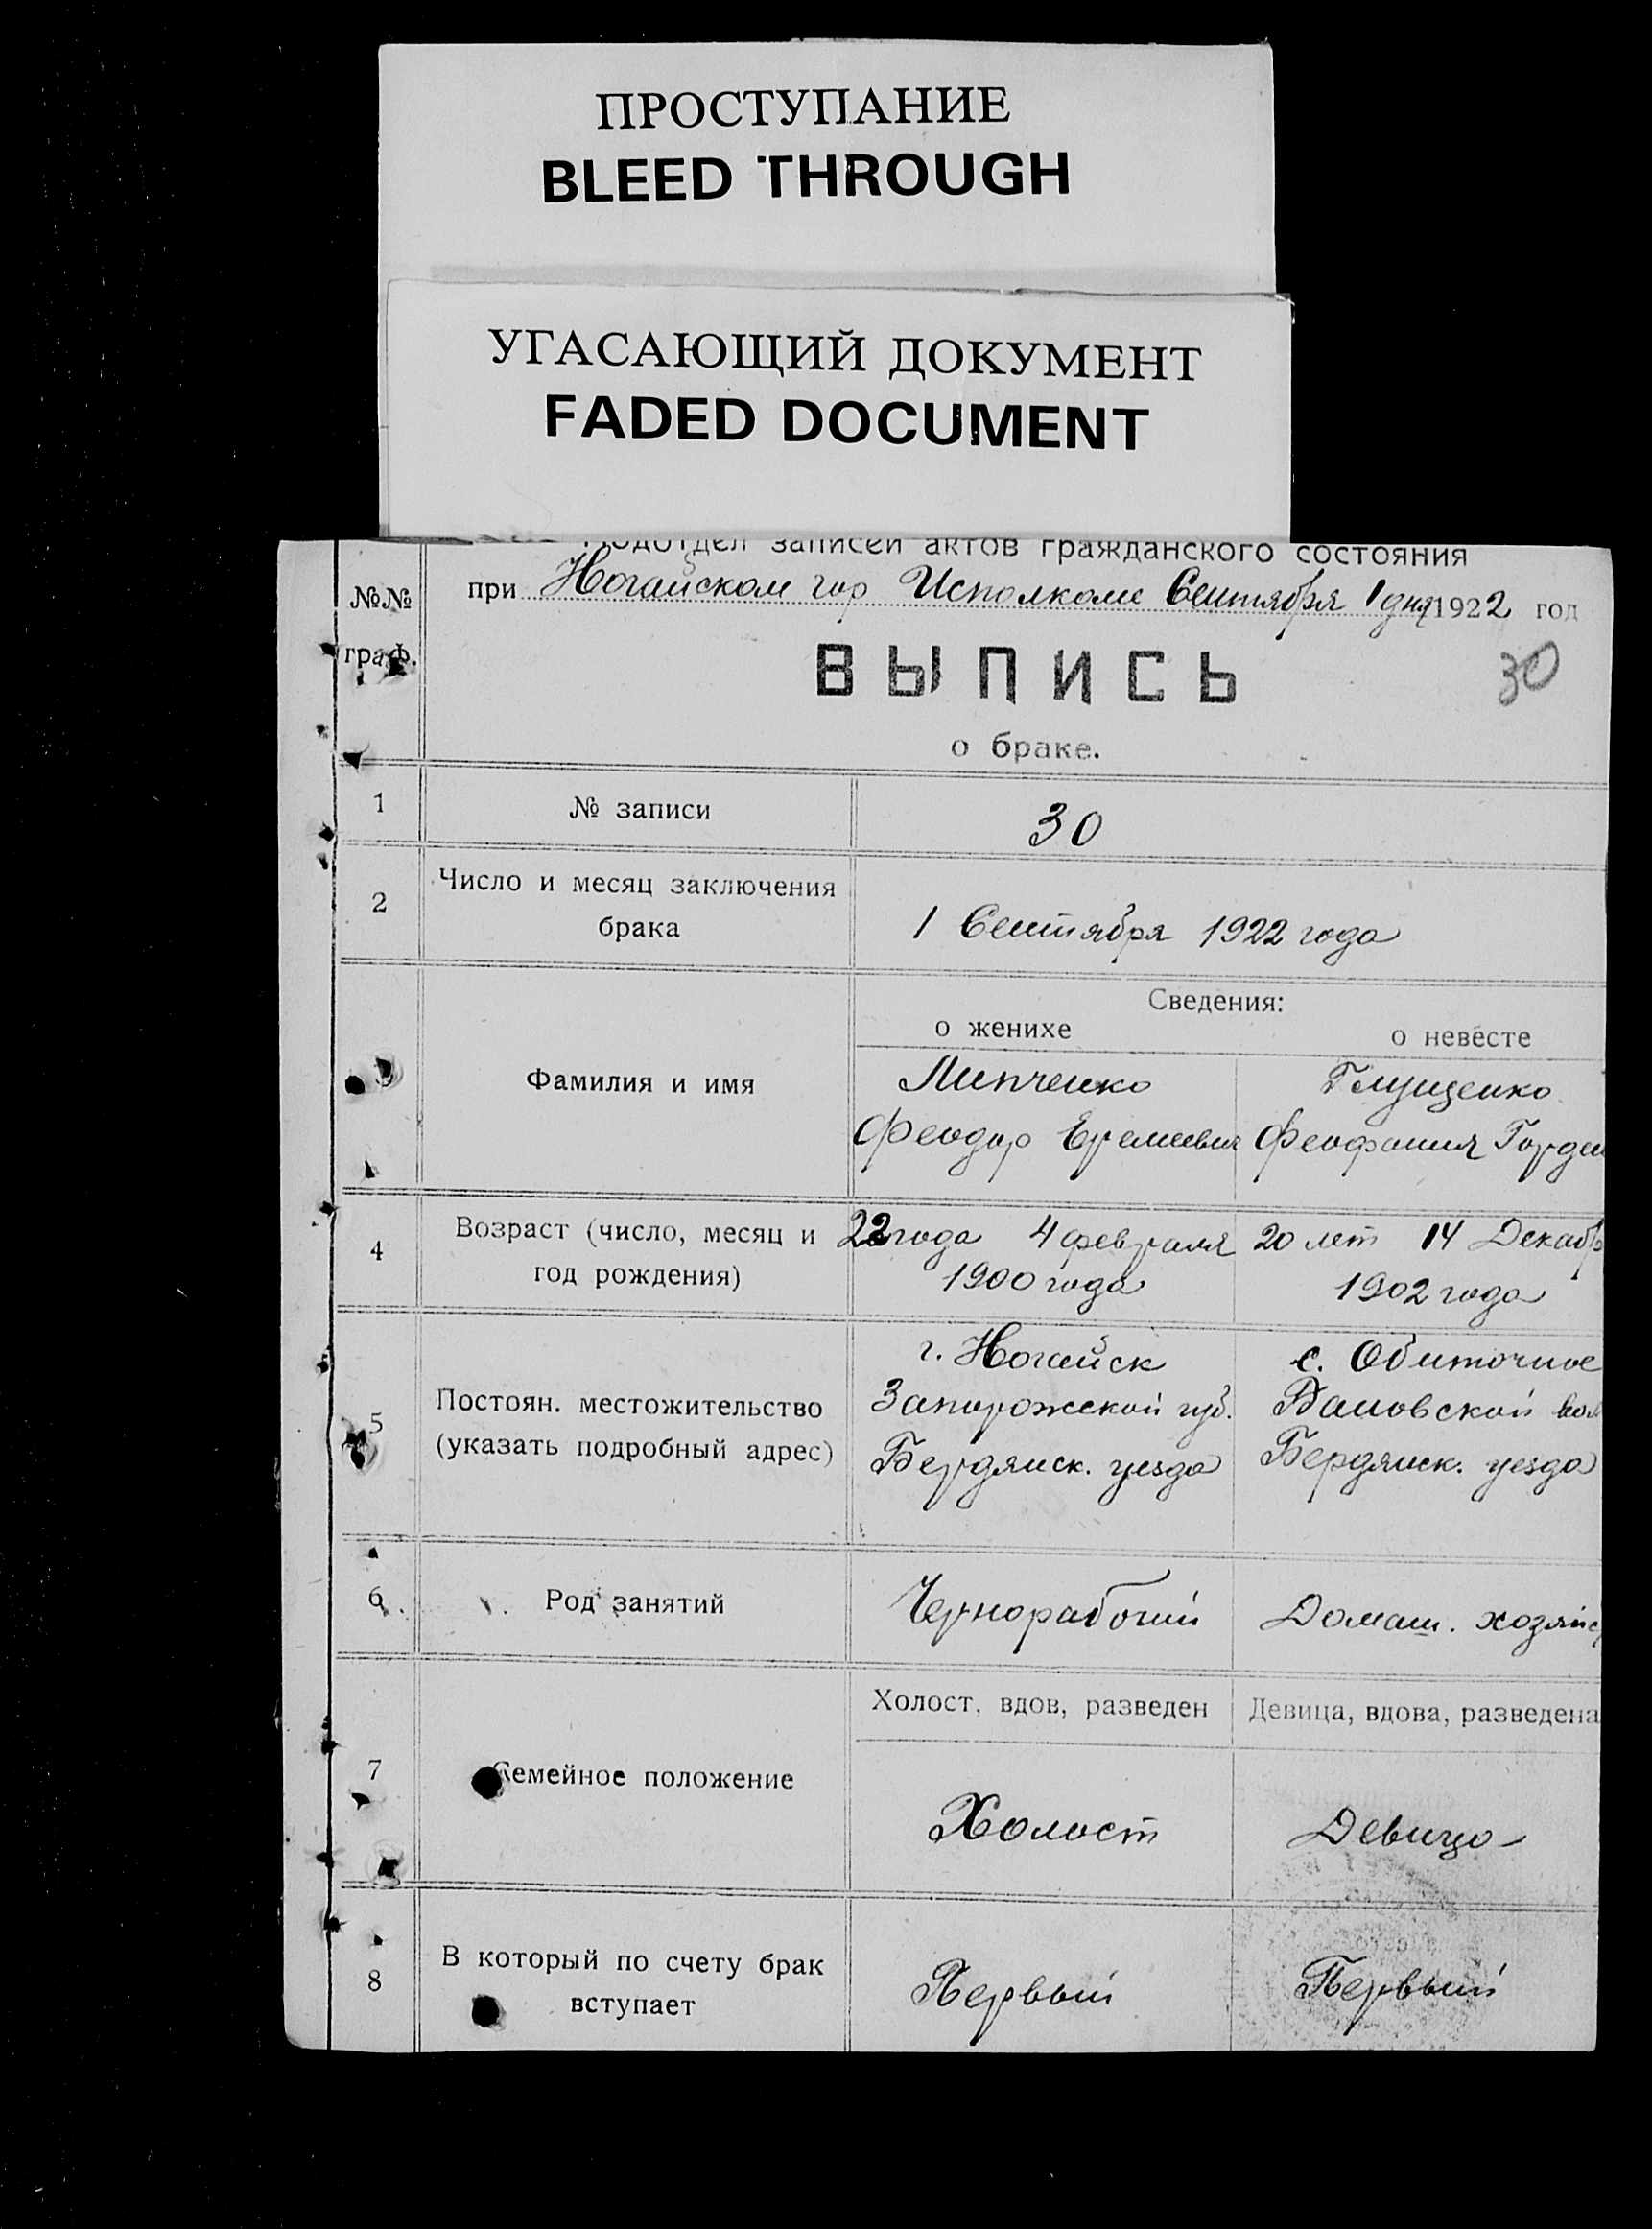 ПРОСТУПАНИЕ
BLEED THROUGH
УГАСАЮЩИЙ ДОКУМЕНТ
FADED DOCUMENT
Подотдел записей актов гражданского состояния
№№ граф.
при Ногайском гор Исполкоме Сентября 1 дня 1922 год
ВЫПИСЬ
30
о браке.
1 № записи 30
2 Число и месяц заключения
брака
1 Сентября 1922 года
Сведения:
о женихе о невесте
3 Фамилия и имя
Липченко Глущенко
Феодор Еремеевич Феофания Горде
4 Возраст (число, месяц и
год рождения)
22 года 4 февраля 20 лет 14 Декабр
1900 года 1902 года
5 Постоян. местожительство
(указать подробный адрес)
г. Ногайск с. Обиточное
Запорожской губ. вол
Бердянск. уезда Бердянск. уезда
6 Род занятий Чернорабочий Домаш. хозяйс
Холост, вдов, разведен Девица, вдова, разведена
7 Семейное положение
Холост Девица
8 В который по счету брак
вступает
Первый Первый